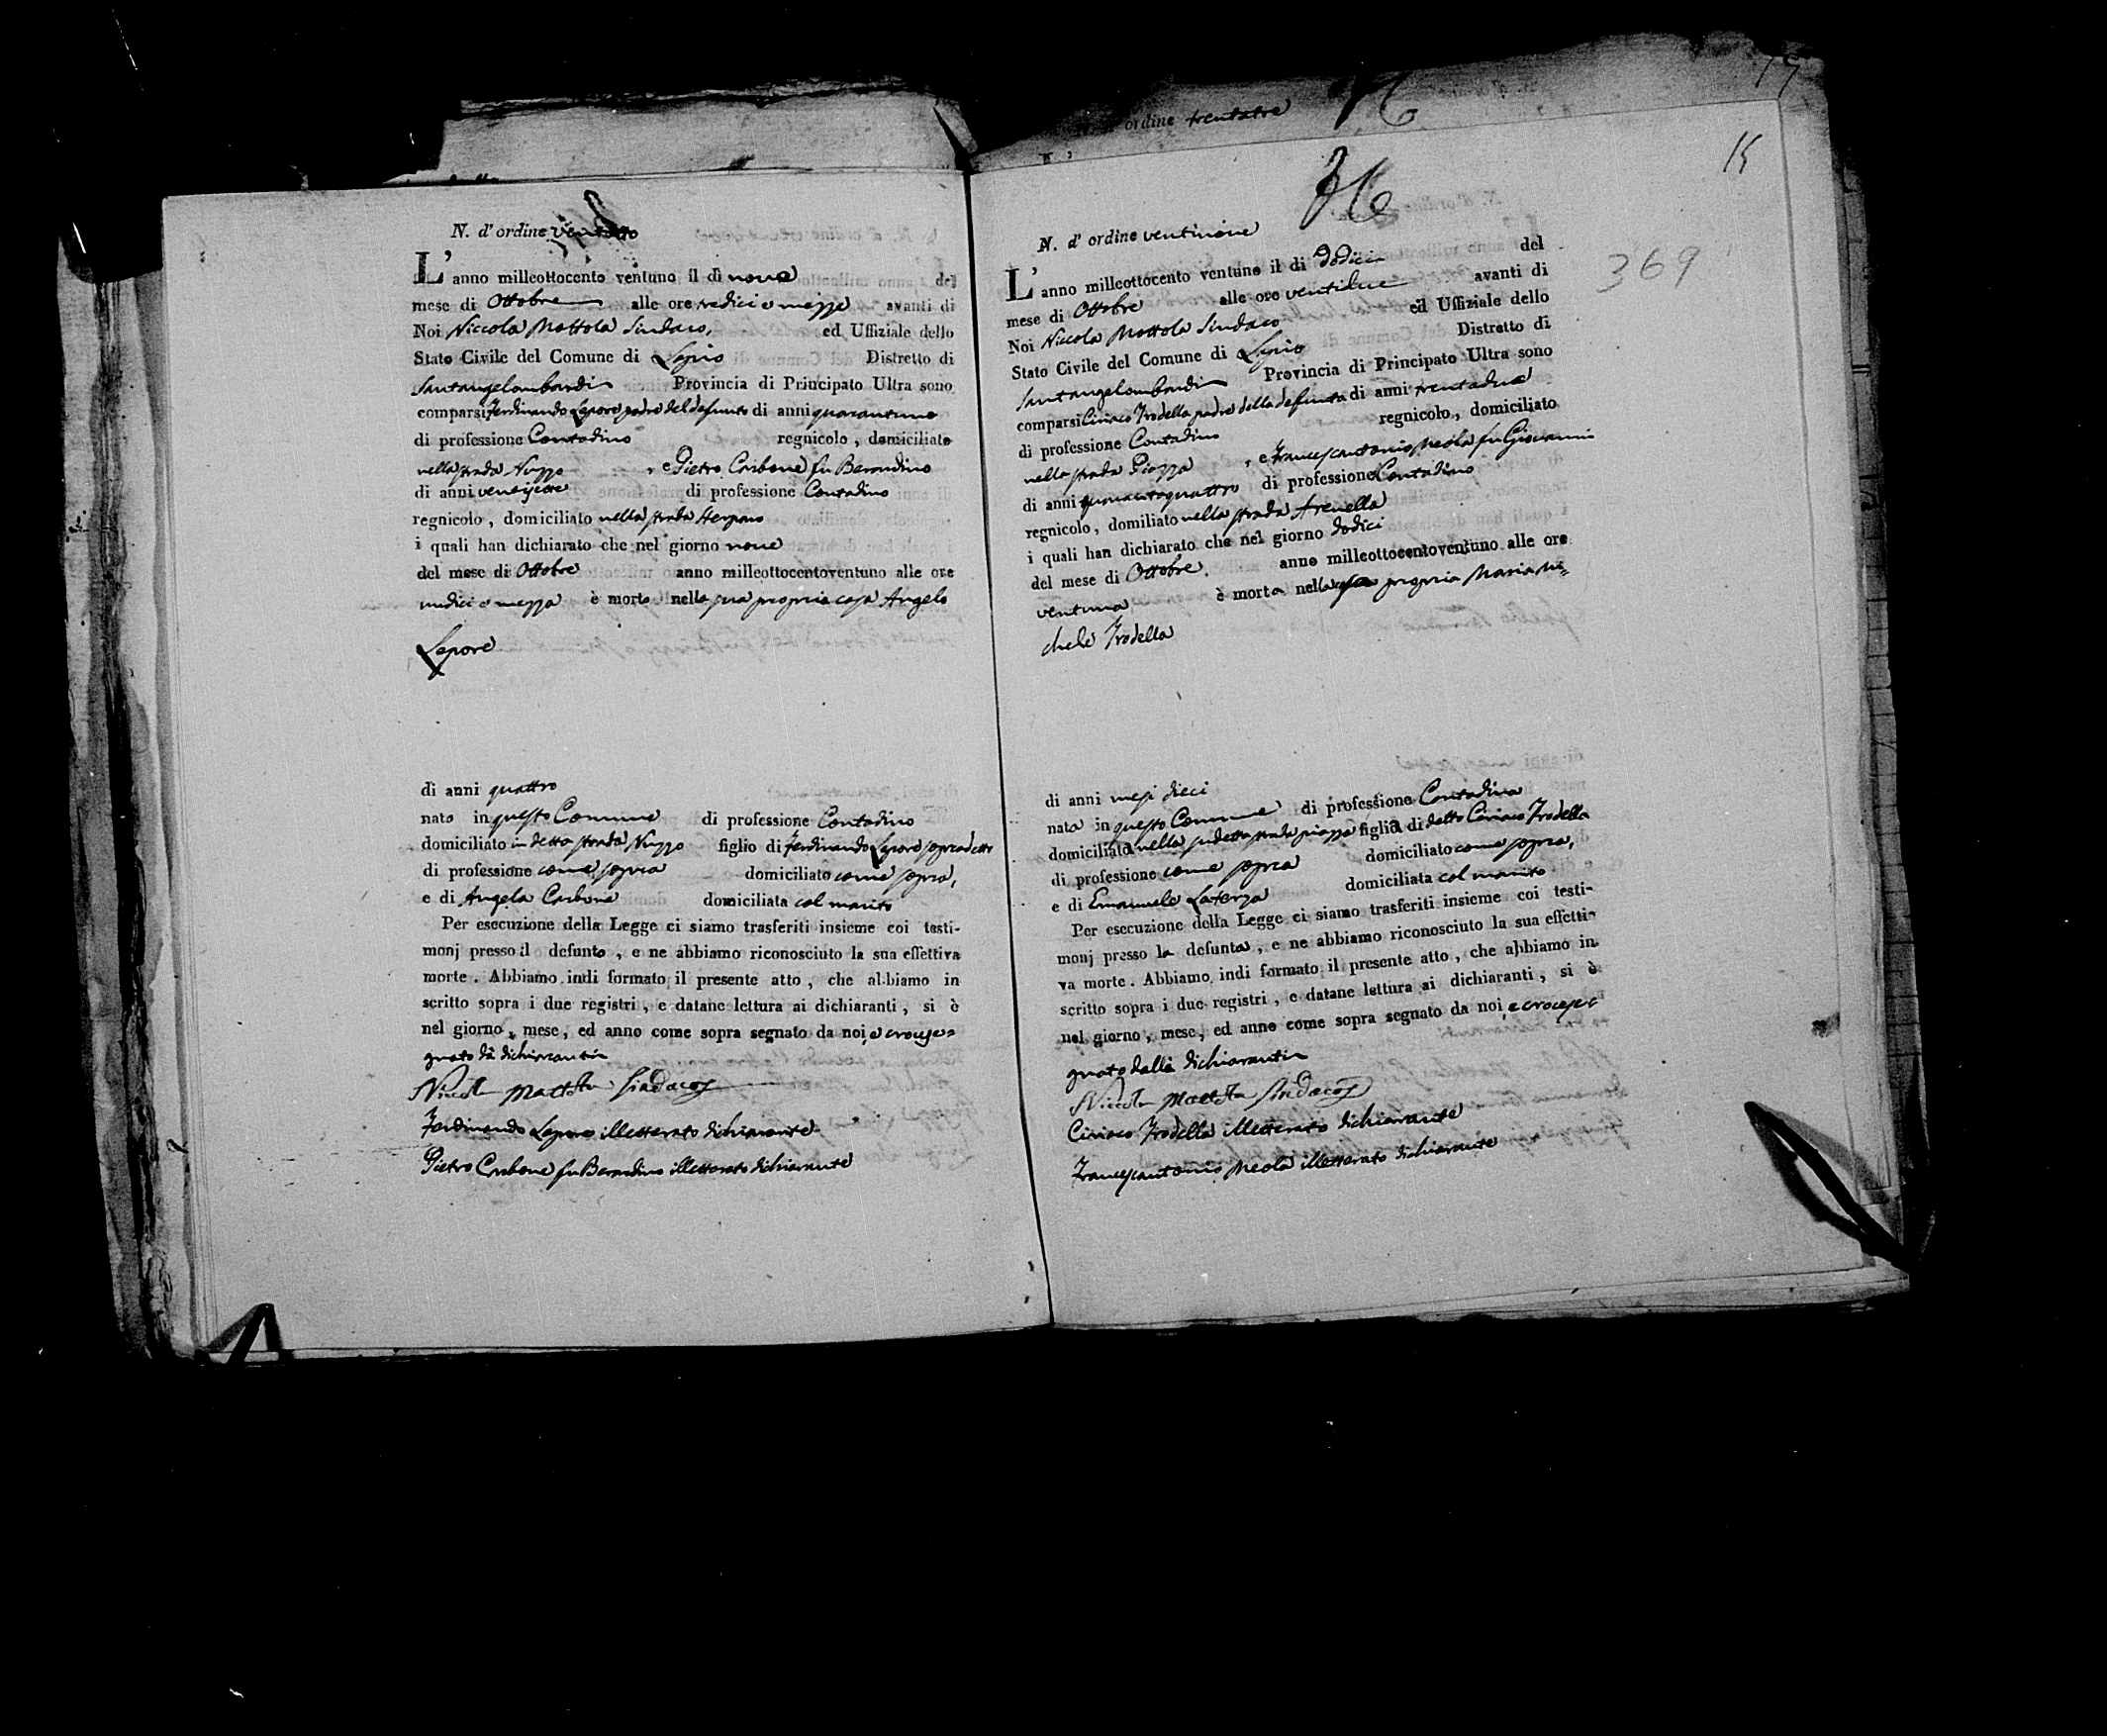 N. d' ordine ventotto
L' anno milleottocento ventuno il dì nove del
mese di Ottobre alle ore tredici e mezza avanti di
Noi Niccola Mottola Sindaco, ed Uffiziale dello
Stato Civile del Comune di Lapio Distretto di
Santangelombardi Provincia di Principato Ultra sono
comparsi Ferdinando Lepore padre del defunto di anni quarantuno
di professione Contadino regnicolo, domiciliato
nella strada Nuzzo, e Pietro Carbone fu Berardino
di anni ventisette di professione Contadino
regnicolo, domiciliato nella strada
i quali han dichiarato che nel giorno nove
del mese di Ottobre anno milleottocentoventuno alle ore
undici e mezza è morto nella sua propria casa Angelo
Lepore
di anni quattro
nato in questo Commune di professione Contadino
domiciliato in detta strada Nuzzo figlio di Ferdinando Lepore sopradetto
di professione come sopra domiciliato come sopra,
e di Angela Carbone domiciliata col marito
Per esecuzione della Legge ci siamo trasferiti insieme coi testi-
monj presso il defunto, e ne abbiamo riconosciuto la sua effettiva
morte. Abbiamo indi formato il presente atto, che abbiamo in
scritto sopra i due registri, e datane lettura ai dichiaranti, si è
nel giorno, mese, ed anno come sopra segnato da noi, e crocese=
gnato dà dichiaranti
Niccola Mottola Sindaco
Ferdinando Lepore illetterato dichiarante
Pietro Carbone fu Berardino illetterato dichiarante
ordine trentatre
15
369
N. d' ordine ventinove
L' anno milleottocento ventuno il di Dodici del
mese di Ottobre alle ore ventidue avanti di
Noi Niccola Mottola Sindaco ed Uffiziale dello
Stato Civile del Comune di Lapio Distretto di
Santangelombardi Provincia di Principato Ultra sono
comparsi Ciriaco Trodella padre della defunta di anni trentadue
di professione Contadino regnicolo, domiciliato
nella strada Piazza, e Francescantonio Meola fu Giovanni
di anni quarantaquattro di professione Contadino
regnicolo, domiliato nella strada Arenella
i quali han dichiarato che nel giorno dodici
del mese di Ottobre anno milleottocentoventuno alle ore
ventuna è morta nella casa propria Maria Mi=
chele Trodella
di anni mesi dieci
nata in questo Commune di professione Contadina
domiciliata nella sudetta strada piazza figlia di detto Ciriaco Trodella
di professione come sopra domiciliato come sopra,
e di Emanuele Laterza domiciliata col marito
Per esecuzione della Legge ci siamo trasferiti insieme coi testi-
monj presso la defunta, e ne abbiamo riconosciuto la sua effetti-
va morte. Abbiamo indi formato il presente atto, che abbiamo in
scritto sopra i due registri, e datane lettura ai dichiaranti, si è
nel giorno, mese, ed anno come sopra segnato da noi, e crocese=
gnato dalli dichiaranti
Niccola Mottola Sindaco
Ciriaco Trodella illetterato dichiarante
Francescantonio Meola illetterato dichiarante